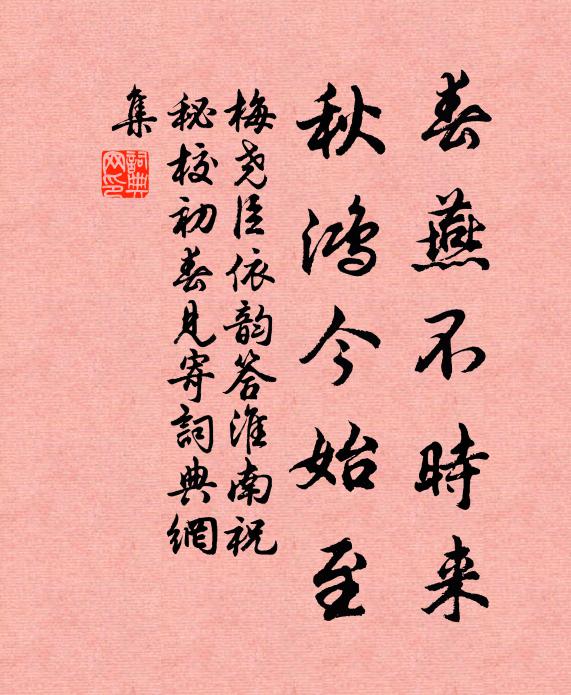 春燕不時来
秋鸿今始至
梅尧臣依韵答淮南祝
秘校初春見寄詞典網
集
詞典網印